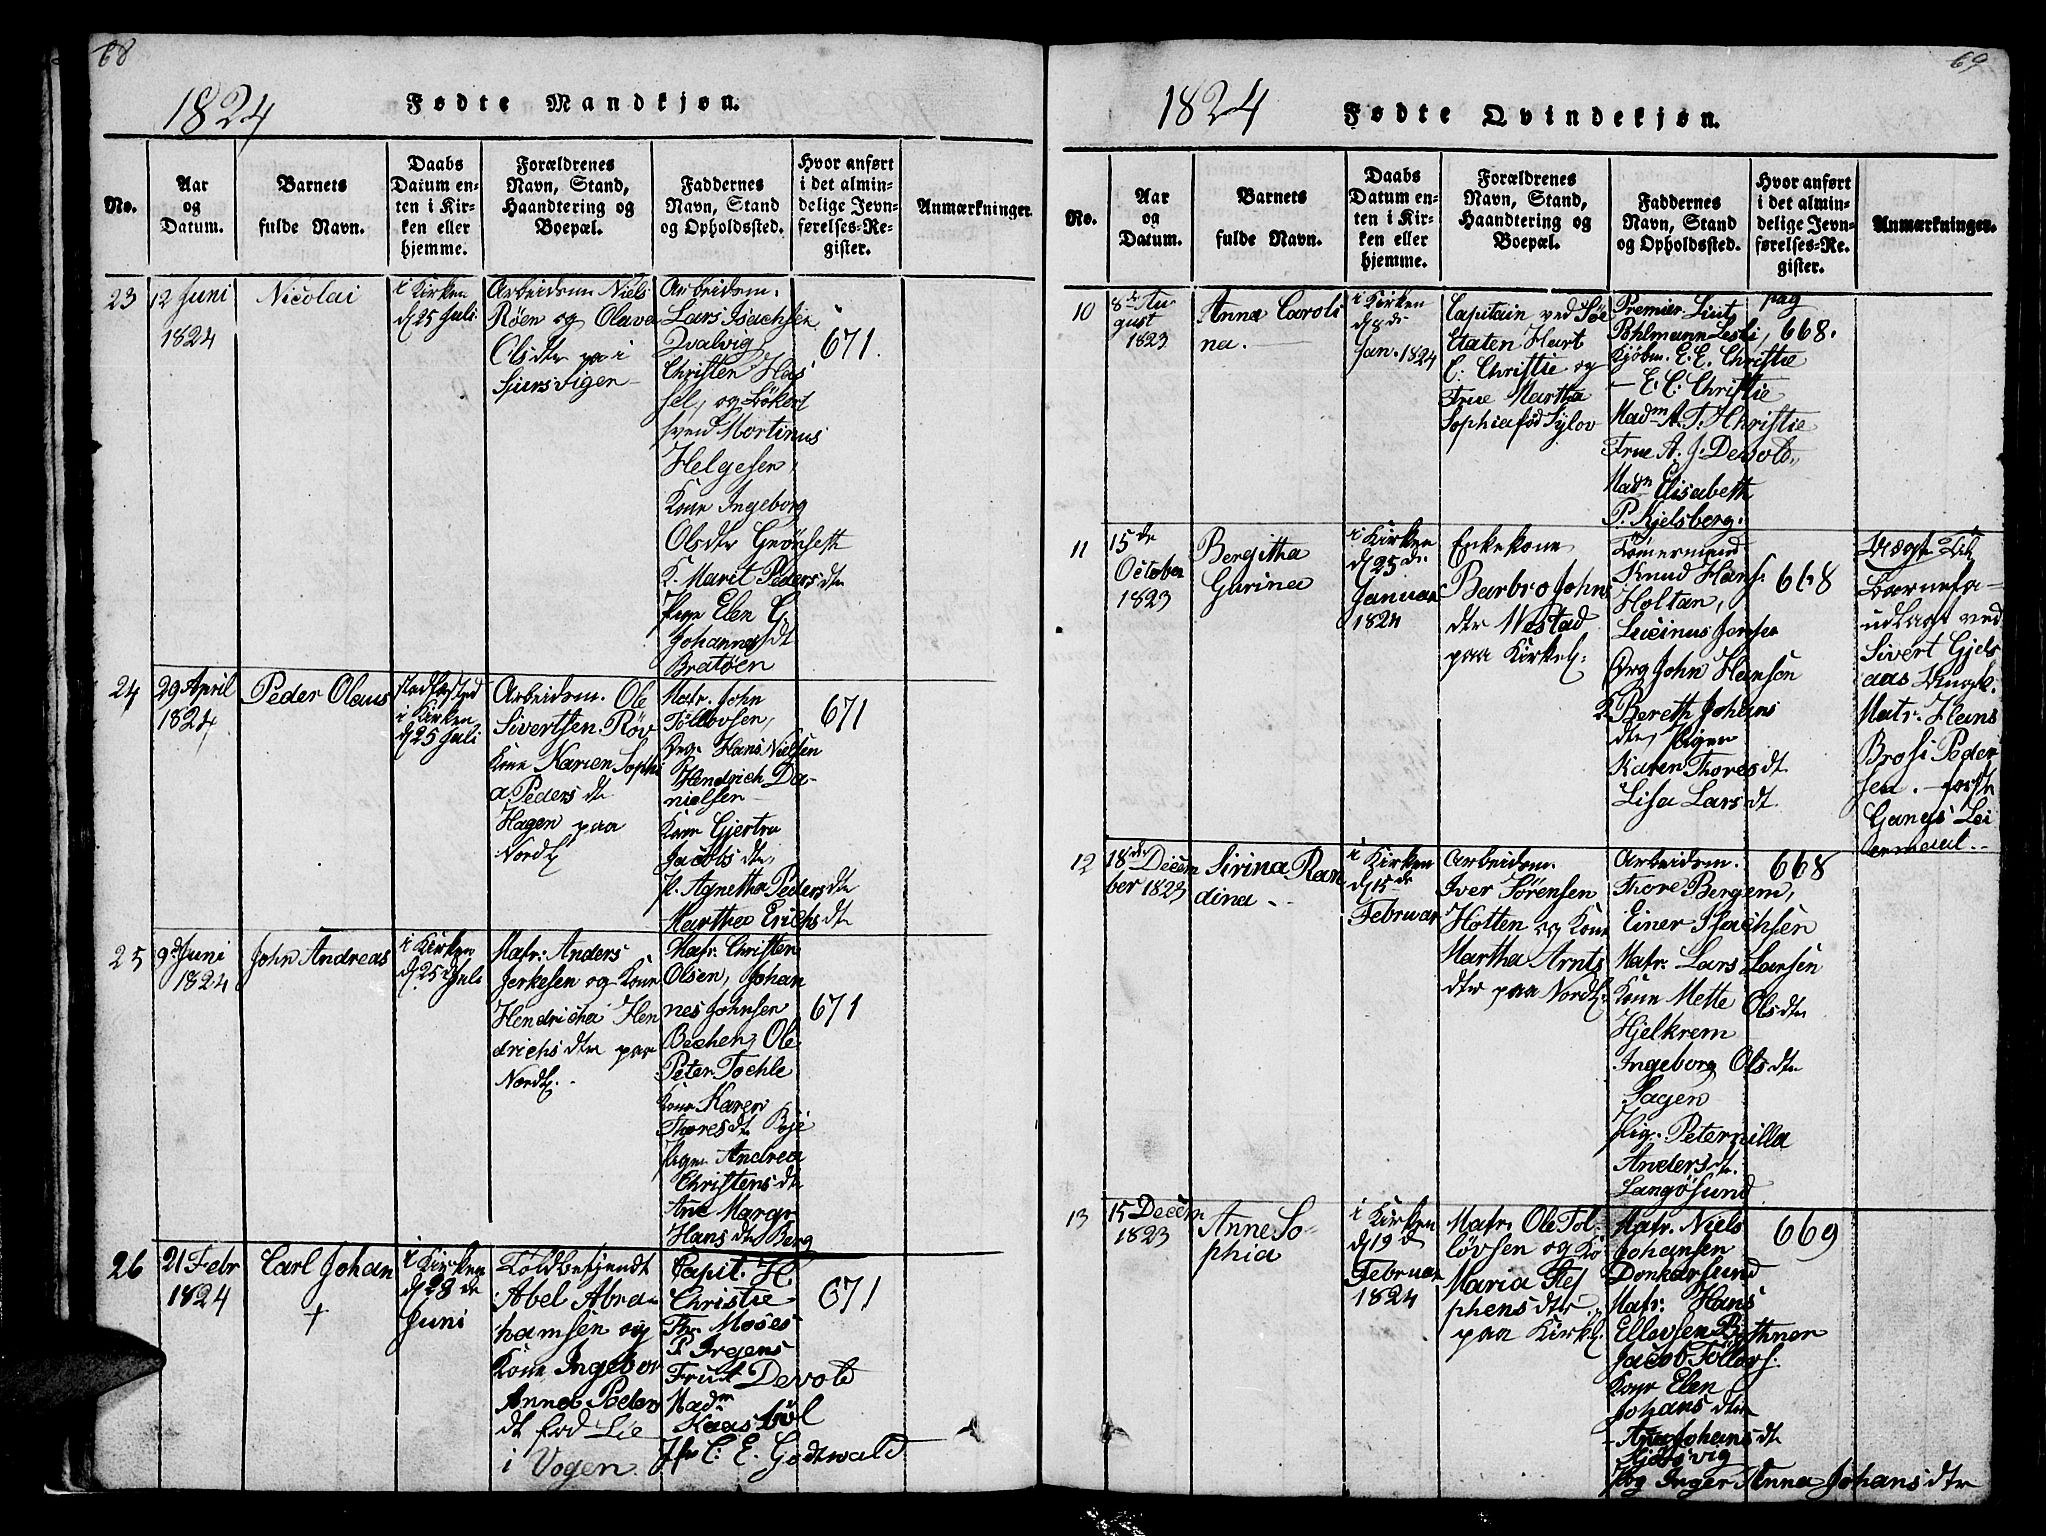 68
1824
Fødte Mandkjøn.
No.
Aar
og
Datum.
Barnets
fulde Navn.
Daabs
Datum en-
ten i Kir-
ken eller
hjemme.
Forældrenes
Navn, Stand,
Haandtering og
Boepæl.
Faddernes
Navn, Stand
og Opholdssted.
Hvor anført
i det almin-
delige Jevn-
førelses-Re-
gister.
Anmærkninger.
23
12 Juni
1824
Nicolai
i Kirken
d 25 Juli
Arbeidsm. Niels
Röen og Olava
Olsdtr paa i
Sjursvigen
Arbeidsm.
Lars Isachsen
Qvalvig
Christen Has
sel, og Bökert
svend Mortinus
Helgesen,
Kone Ingeborg
Olsdtr Grönseth
K. Marit Pedersdtr
Pige Elen G
Johannesdt
Bratöen
671.
24
29 April
1824
Peder Olaus
stadfæsted
i Kirken
d 25 Juli
Arbeidsm. Ole
Sivertsen Röv
Kone Karen Sophi
a Peders dtr
Hagen paa
Nordl.
Matr. John
Tollevsen,
Hans Nielsen
Hendrich Da-
nielsen
Kone Gjertru
Jacobs dtr,
P. Agnetha Pedersdtr
Marthea Erichsdtr
671
25
9d Juni
1824
John Andreas
i Kirken
d 25 Juli
Matr. Anders
Jerkesen og Kone
Hendricha Hen
drichsdtr paa
Nordl.
Matr. Christen
Olsen, Johan
nes Johnsen
Bechen, Ole
Peter Tochle
Kone Karen
Thoresdtr Boje
Pigen Andrea
Christensdtr
Ane Margr
Hansdtr Berg
671
26
21 Febr
1824
Carl Johan
+
i Kirken
d 28 de
Juni
Toldbetjendt
Abel Abra-
hamsen og
Kone Ingebor
Anne Peders
dt fød Lie
i Vogen.
Capit. H
Christie
Hr. Moses
P. Irgens
Frue Devold
Madm
Kaasböl
Jfr C. E. Godtwald
671
69
1824
Fødte Qvindekjøn.
No.
Aar
og
Datum.
Barnets
fulde Navn.
Daabs
Datum en-
ten i Kir-
ken eller
hjemme.
Forældrenes
Navn, Stand,
Haandtering og
Boepæl.
Faddernes
Navn, Stand
og Opholdssted.
Hvor anført
i det almin-
delige Jevn-
førelses-Re-
gister.
Anmærkninger.
10
8de Au
gust
1823
Anna Caroli
na.
i Kirken
d 8de
Jan. 1824
Capitain ved Söe
Etaten Hart
C. Christie og
Frue Martha
Sophia fød Sylov
Premier Liut
Bohlmann Lesli,
Kjøbm. E. E. Christie
— E. C. Christie
Madm A. T. Christie
Frue A. J. Devold,
Madm Elisabeth
P. Kjelsberg.
pag
668.
11
15de
October
1823
Bergitha
Gurina
i Kirken
d 25 de
Januar
1824
Enkekone
Barbro Johns
dtr Nestad
paa Kirkel.
Tømermend
Knud Hans.
Holtan,
Lucinus Jensen
Drg John Hansen
K Bereth Johans
dtr, Piger
Karen Thoresdt
Lisa Larsdt.
668
Uægte Til
Barnefa-
udlagt ved
Sivert Gjels
aas
Matr. Hans
Brosi Peder
sen. første
Gangs Lei
ermaal.
12
18de Decem
ber 1823
Sirina Ran
dina
i Kirken
d 15de
Februar
Arbeidsm.
Iver Sörensen
Holten og Kone
Martha Arnts
dtr paa Nordl.
Arbeidsm.
Thore Bergem,
Einer Isachsen
Matr. Lars Larsen
Kone Mette Olsdtr
Hjelkrem
Ingeborg Olsdtr
Sagen
Pig. Peternilla
Andersdtr
Langösund.
668
13
15 Decem
1823
Anne So-
phia
i Kirken
d 19 d
Februar
1824
Matr. Ole Tol-
lövsen og Ko
Maria Stef
phensdtr
paa Kirkl.
Matr. Niels
Johansen
Donkarsund
Matr. Hans
Ellevsen Böthner
Jacob Tollefs.
Kone Elen
Johansdtr
Ane Johansdt
Pig Inger Anna Johansdtr
669